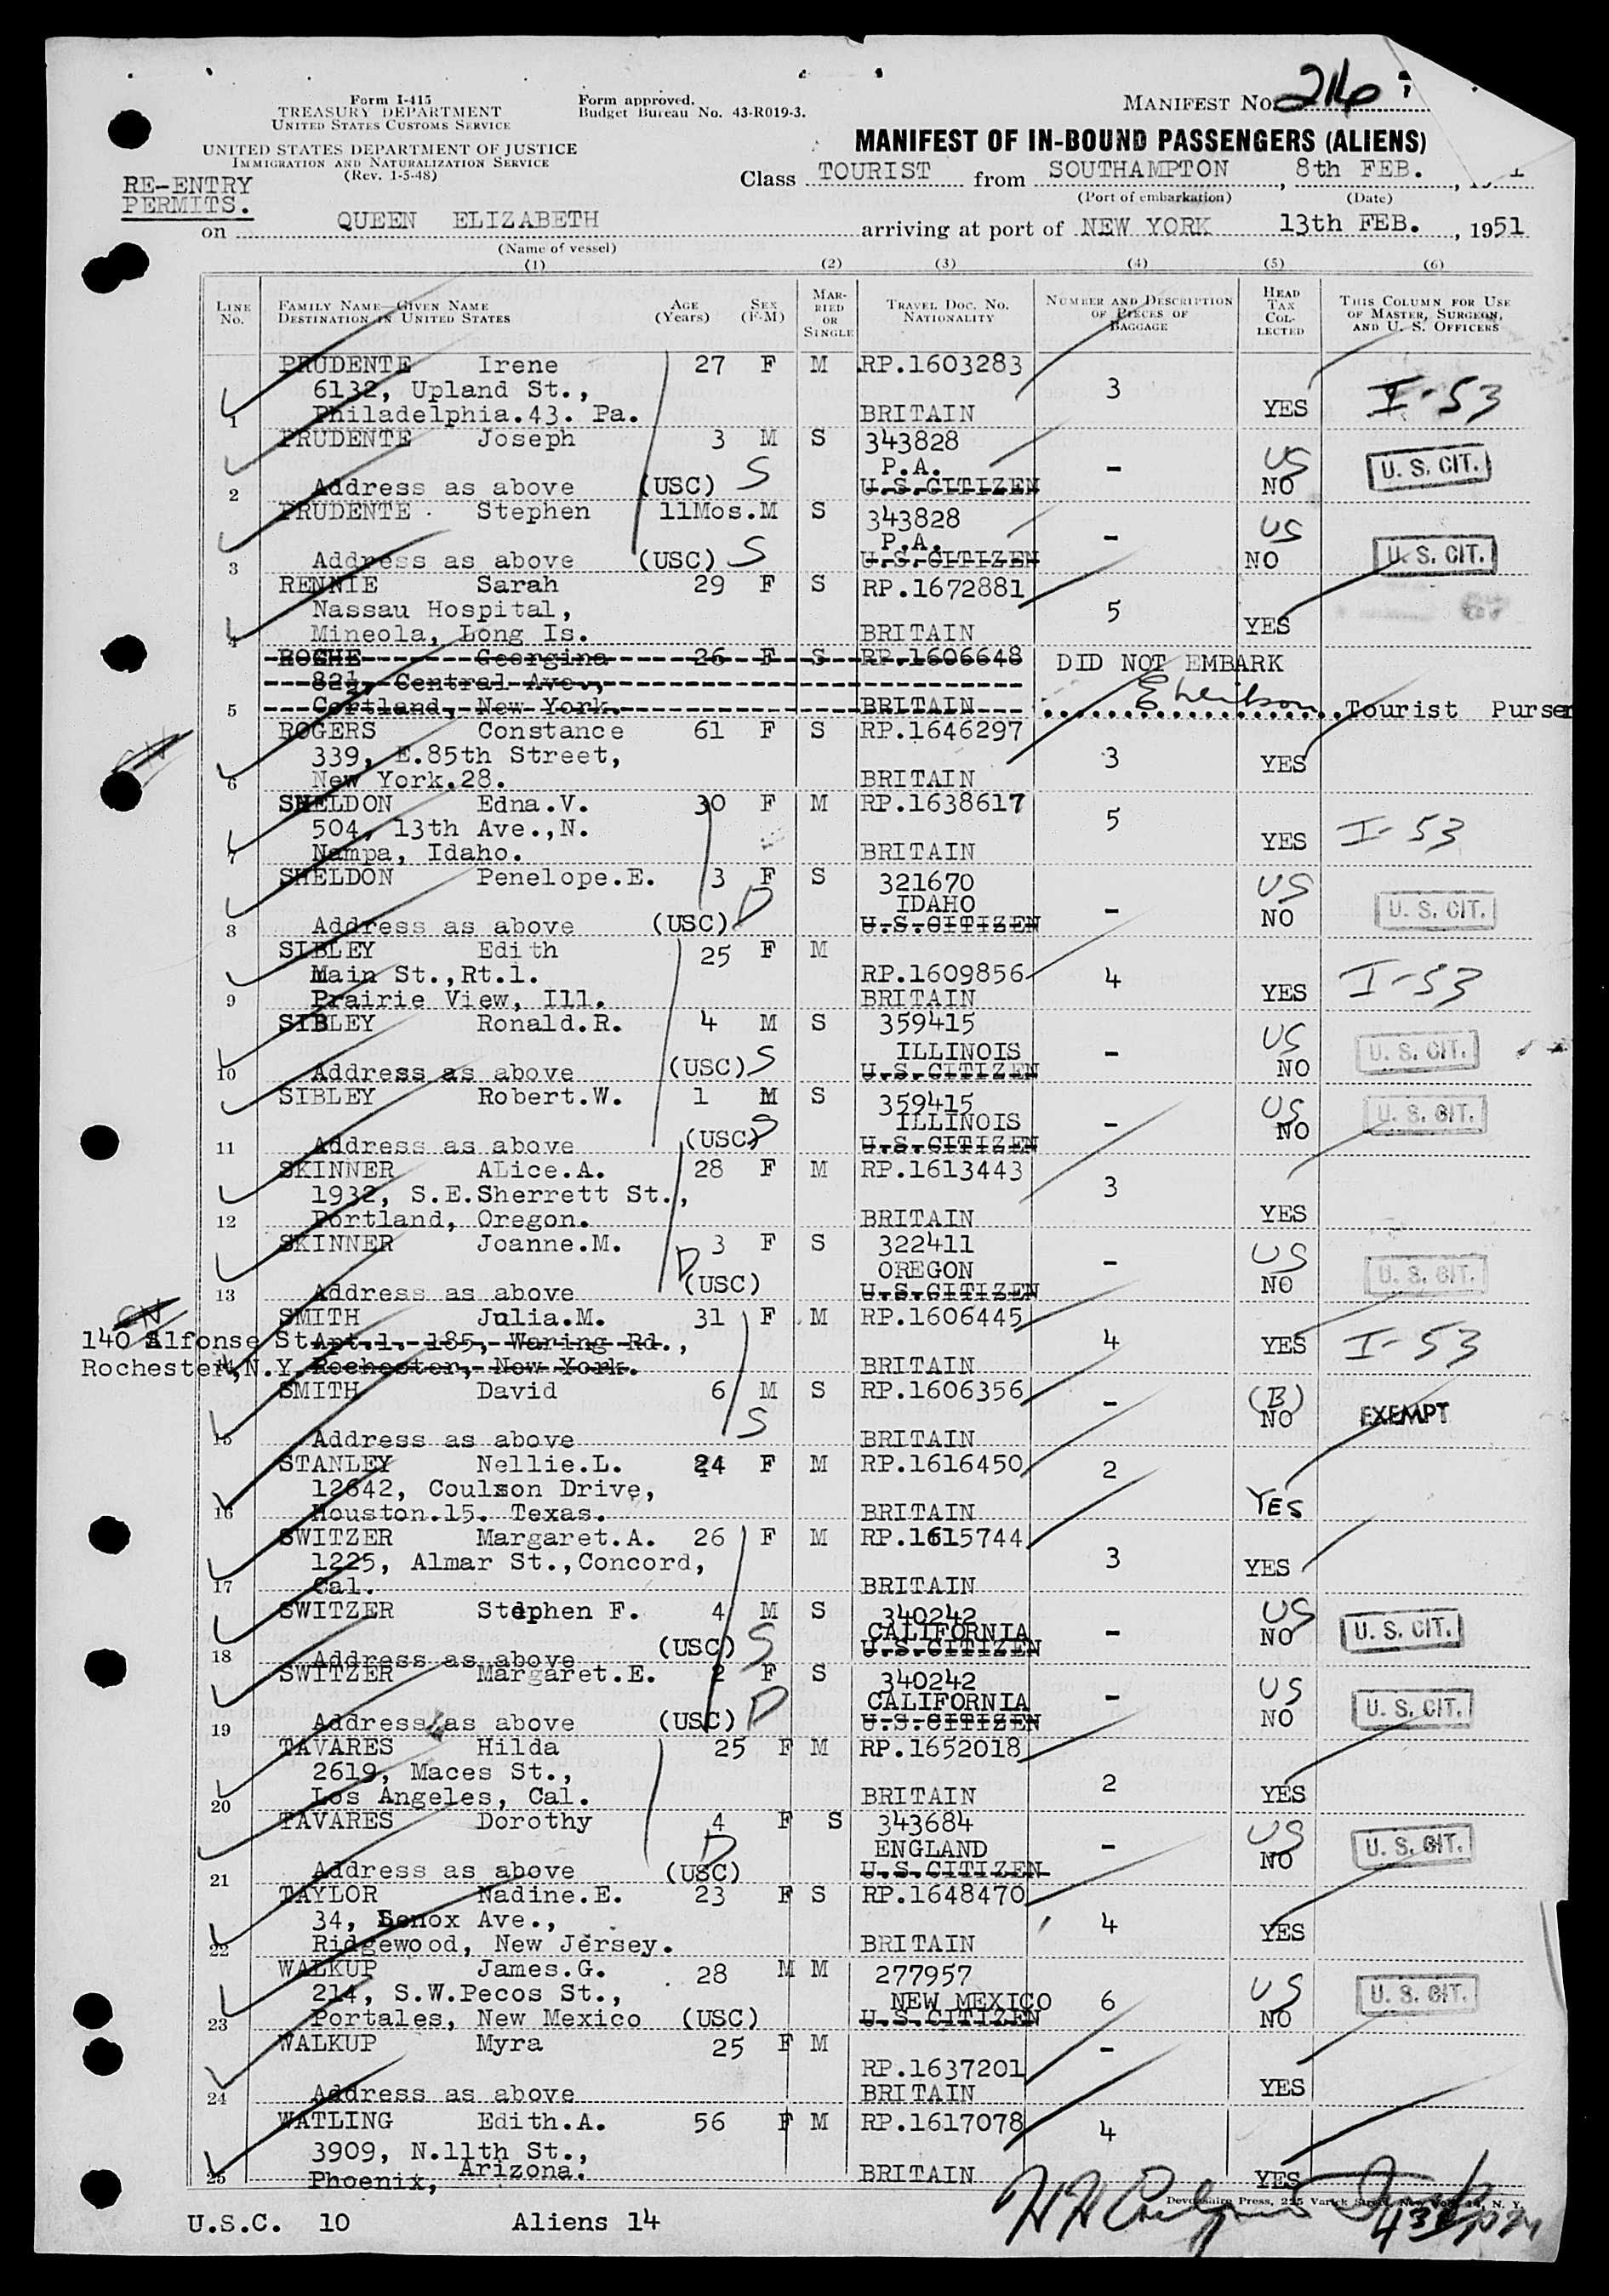 Form I-415
TREASURY DEPARTMENT
UNITED STATES CUSTOMS SERVICE
UNITED STATES DEPARTMENT OF JUSTICE
IMMIGRATION AND NATURALIZATION SERVICE
(Rev. 1-5-48)
Form approved.
Budget Bureau No. 43-R019-3.
MANIFEST No. 216
MANIFEST OF IN-BOUND PASSENGERS (ALIENS)
RE-ENTRY
PERMITS.
Class TOURIST from SOUTHAMPTON, 8th FEB.,
(Port of embarkation) (Date)
on QUEEN ELIZABETH arriving at port of NEW YORK 13th FEB., 1951
(Name of vessel)
(1) (2) (3) (4) (5) (6)
LINE No. FAMILY NAME—GIVEN NAME DESTINATION IN UNITED STATES AGE (Years) SEX (F-M) MARRIED OR SINGLE TRAVEL DOC. NO. NATIONALITY NUMBER AND DESCRIPTION OF PIECES OF BAGGAGE HEAD TAX COLLECTED THIS COLUMN FOR USE OF MASTER, SURGEON, AND U. S. OFFICERS
PRUDENTE Irene 27 F M RP.1603283
6132, Upland St., 3
1 Philadelphia.43. Pa. BRITAIN YES I-53
PRUDENTE Joseph 3 M S 343828 US
P.A. - U. S. CIT.
2 Address as above (USC) S U.S.CITIZEN NO
PRUDENTE Stephen 11Mos.M S 343828 US
P.A. - U. S. CIT.
3 Address as above (USC) S U.S.CITIZEN NO
RENNIE Sarah 29 F S RP.1672881
Nassau Hospital, 5
4 Mineola, Long Is. BRITAIN YES
ROCHE Georgina 26 F S RP.1606648 DID NOT EMBARK
82½, Central Ave.,
5 Cortland, New York. BRITAIN Tourist Purser
ROGERS Constance 61 F S RP.1646297
339, E.85th Street, 3 YES
6 New York.28. BRITAIN
SHELDON Edna.V. 30 F M RP.1638617
504, 13th Ave.,N. 5
7 Nampa, Idaho. BRITAIN YES I-53
SHELDON Penelope.E. 3 F S 321670 US
IDAHO - U. S. CIT.
8 Address as above (USC) D U.S.CITIZEN NO
SIBLEY Edith 25 F M
Main St.,Rt.1. RP.1609856 4
9 Prairie View, Ill. BRITAIN YES I-53
SIBLEY Ronald.R. 4 M S 359415 US
ILLINOIS - U. S. CIT.
10 Address as above (USC) S U.S.CITIZEN NO
SIBLEY Robert.W. 1 M S 359415 US
ILLINOIS - U. S. CIT.
11 Address as above (USC) S U.S.CITIZEN NO
SKINNER ALice.A. 28 F M RP.1613443
1932, S.E.Sherrett St., 3
12 Portland, Oregon. BRITAIN YES
SKINNER Joanne.M. 3 F S 322411 US
OREGON - U. S. CIT.
13 Address as above D (USC) U.S.CITIZEN NO
SMITH Julia.M. 31 F M RP.1606445
140 Alfonse St Apt.1. 185, Waring Rd., 4 YES I-53
14 Rochester,N.Y. Rochester, New York. BRITAIN
SMITH David 6 M S RP.1606356 (B)
S - NO EXEMPT
15 Address as above BRITAIN
STANLEY Nellie.L. 24 F M RP.1616450 2
12642, Coulson Drive,
16 Houston.15. Texas. BRITAIN YES
SWITZER Margaret.A. 26 F M RP.1615744
1225, Almar St.,Concord, 3 YES
17 Cal. BRITAIN
SWITZER Stephen F. 4 M S 340242 US
CALIFORNIA - NO U. S. CIT.
18 Address as above (USC) S U.S.CITIZEN
SWITZER Margaret.E. 2 F S 340242 US
CALIFORNIA - U. S. CIT.
19 Address as above (USC) D U.S.CITIZEN NO
TAVARES Hilda 25 F M RP.1652018
2619, Maces St., 2
20 Los Angeles, Cal. BRITAIN YES
TAVARES Dorothy 4 F S 343684 US
D ENGLAND - U. S. CIT.
21 Address as above (USC) U.S.CITIZEN NO
TAYLOR Nadine.E. 23 F S RP.1648470
34, Lenox Ave., 4 YES
22 Ridgewood, New Jersey. BRITAIN
WALKUP James.G. 28 M M 277957
214, S.W.Pecos St., NEW MEXICO 6 US U. S. CIT.
23 Portales, New Mexico (USC) U.S.CITIZEN NO
WALKUP Myra 25 F M -
RP.1637201
24 Address as above BRITAIN YES
WATLING Edith.A. 56 F M RP.1617078 4
3909, N.11th St.,
25 Phoenix, Arizona. BRITAIN YES
Devonshire Press, 225 Varick Street, New York 14, N. Y.
U.S.C. 10 Aliens 14